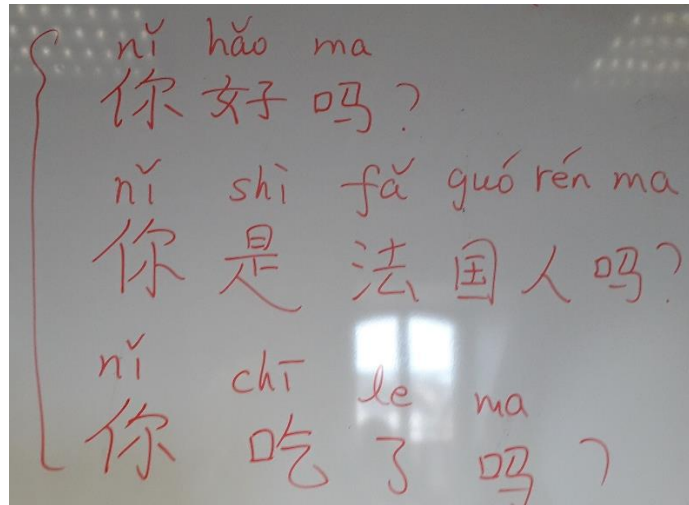 nǐ hǎo ma
你好吗?
nǐ shì fǎ guó rén ma
你是法国人吗?
nǐ chī le ma
你吃了吗?